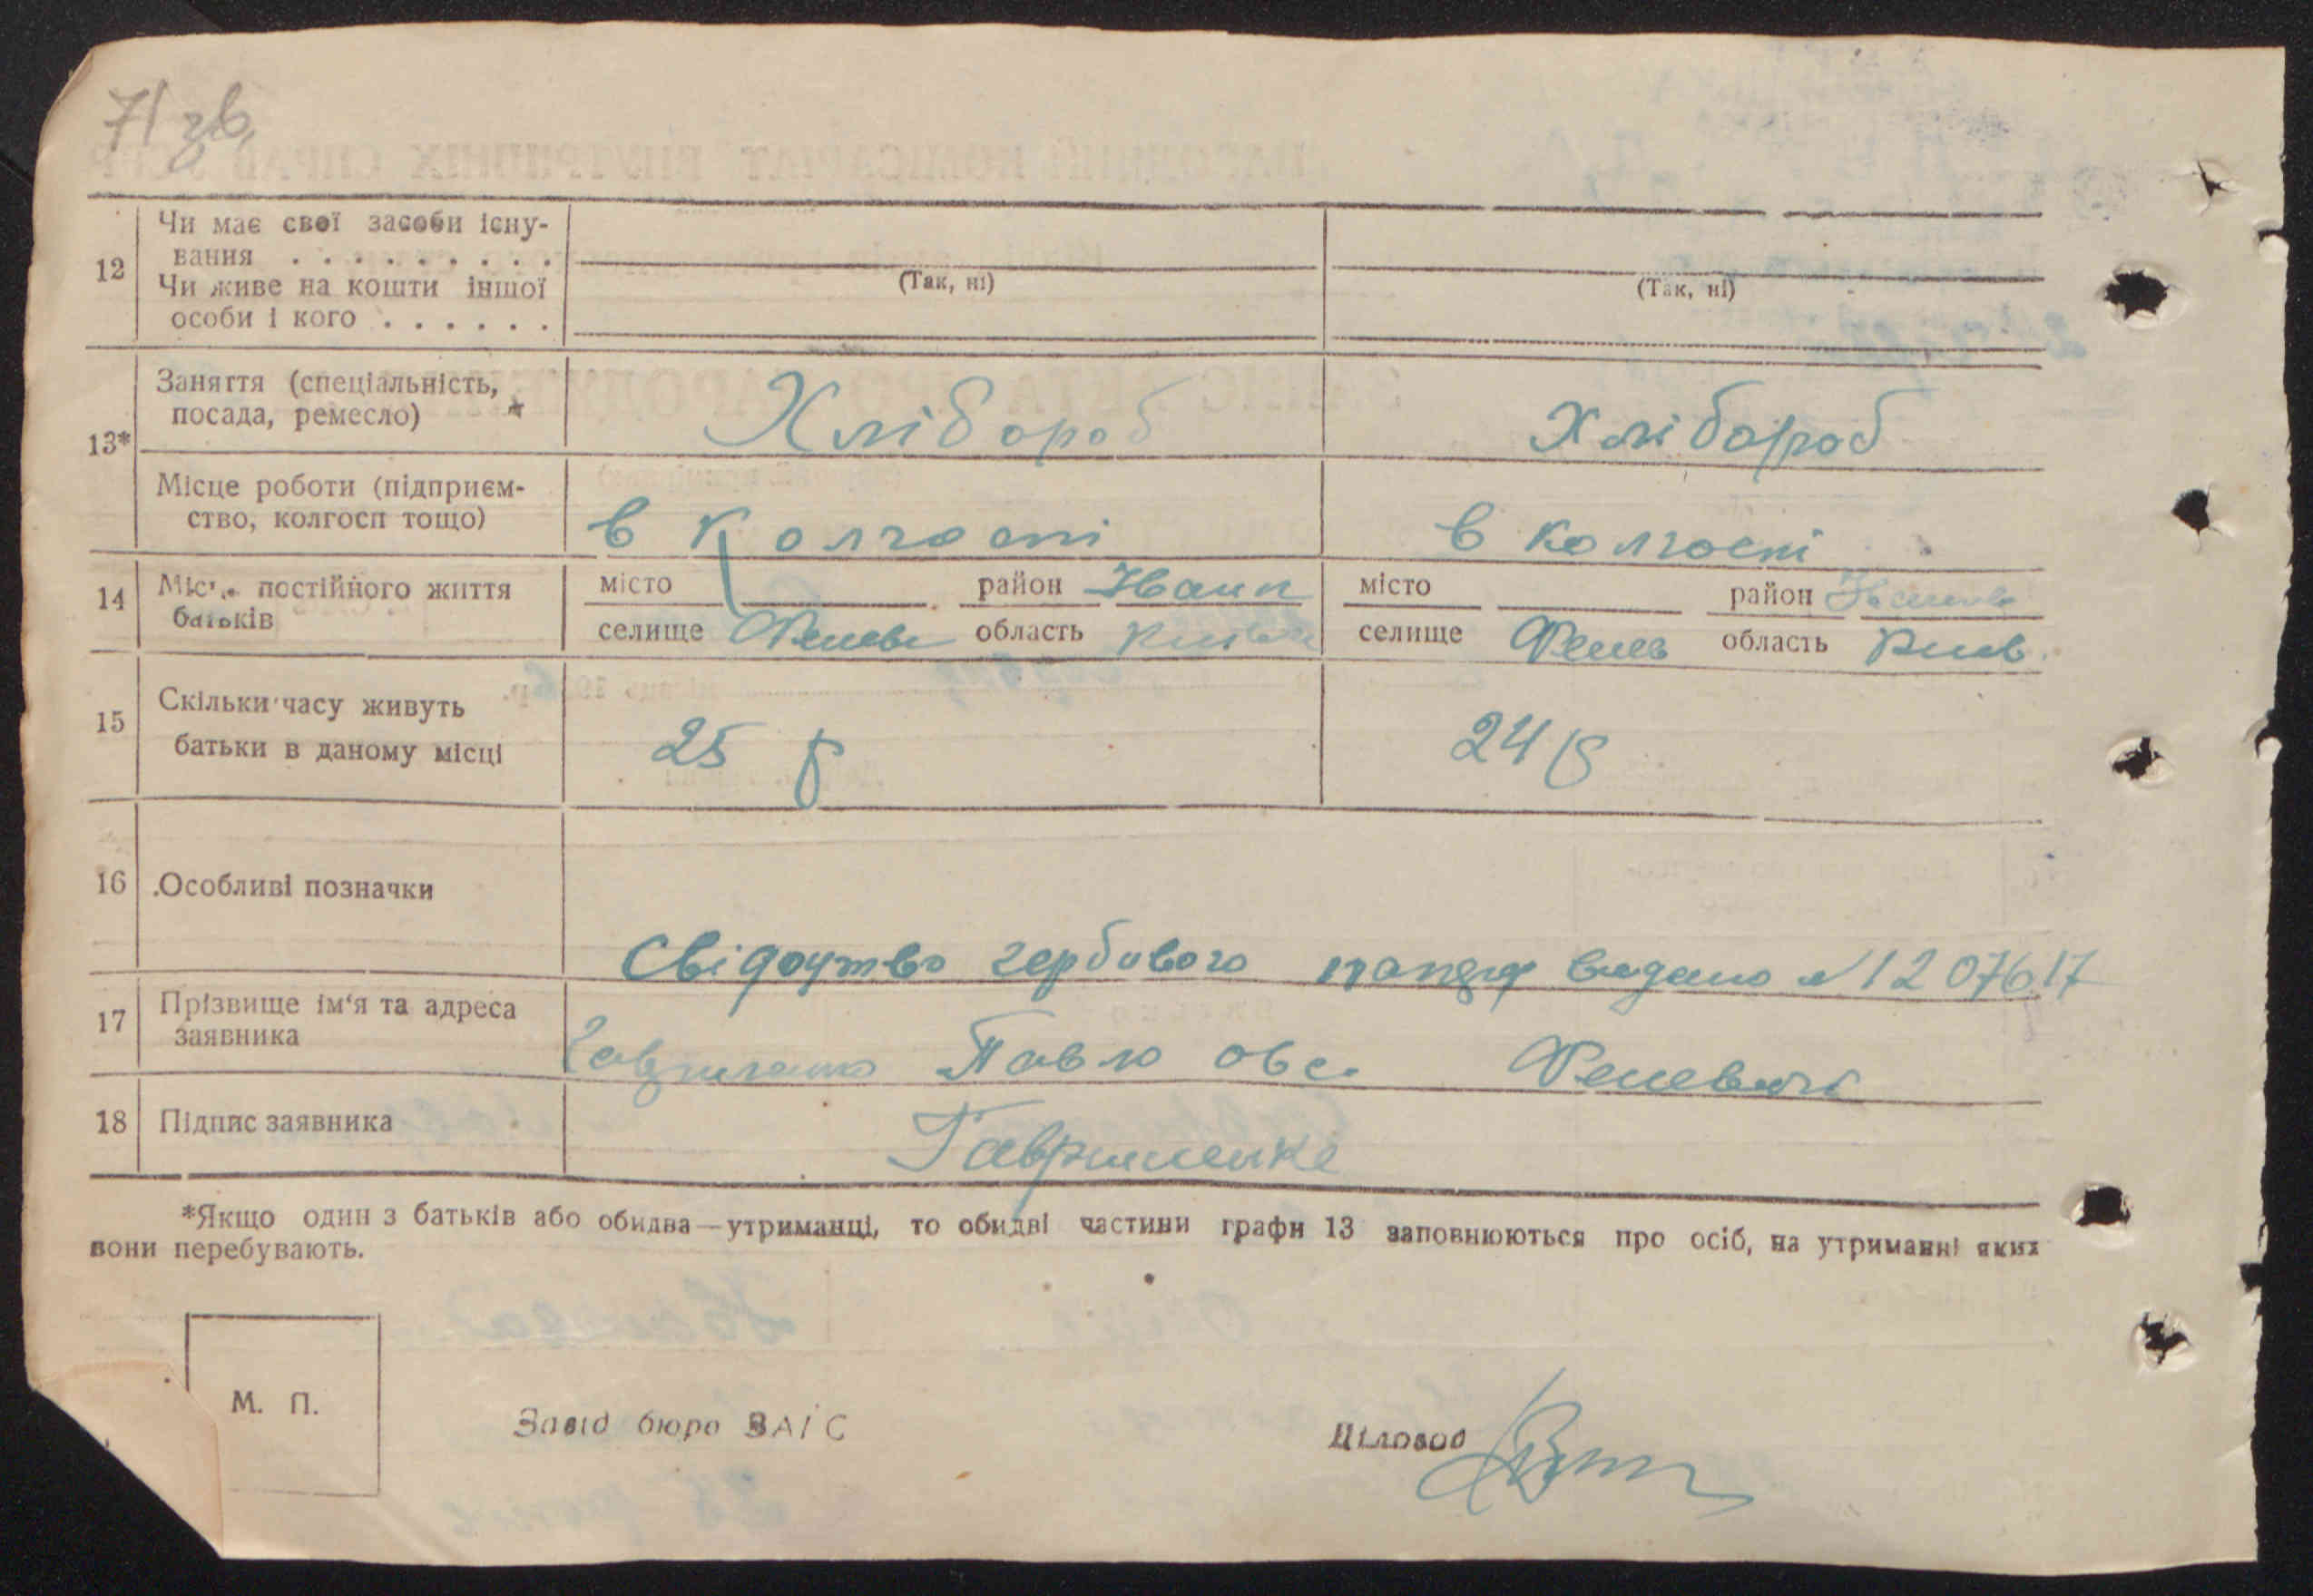 71 зв
12
Чи має свої засоби існу-
вання . . . . . . . . .
(Так, ні)
(Так, ні)
Чи живе на кошти іншої
особи і кого . . . . . .
13*
Заняття (спеціальність,
посада, ремесло)
Хлібороб
Хлібороб
Місце роботи (підприєм-
ство, колгосп тощо)
в Колгоспі
в колгоспі
14
Місце постійного життя
батьків
місто район Іванк
місто район
селище область
селище область Киів
15
Скільки часу живуть
батьки в даному місці
25 р
24 р
16
Особливі позначки
Свідоцтво гербового паперу видано №1207617
17
Прізвище ім'я та адреса
заявника
Павло
18
Підпис заявника
Гавриленко
*Якщо один з батьків або обидва—утриманці, то обидві частини графи 13 заповнюються про осіб, на утриманні яких
вони перебувають.
М. П.
Завід бюро ЗАГС
Діловод